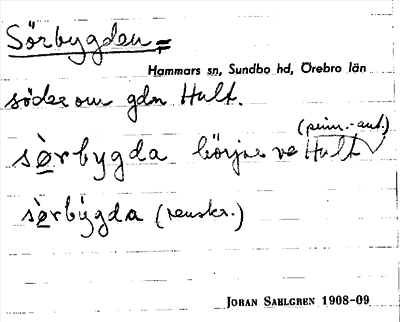 Sörbygden =
Hammars sn, Sundbo hd, Örebro län
söder om gdn Hult.
(prim.-ant.)
sòrbygda börjar ve Hult
sòrbýgda (renskr.)
JORAN SAHLGREN 1908-09